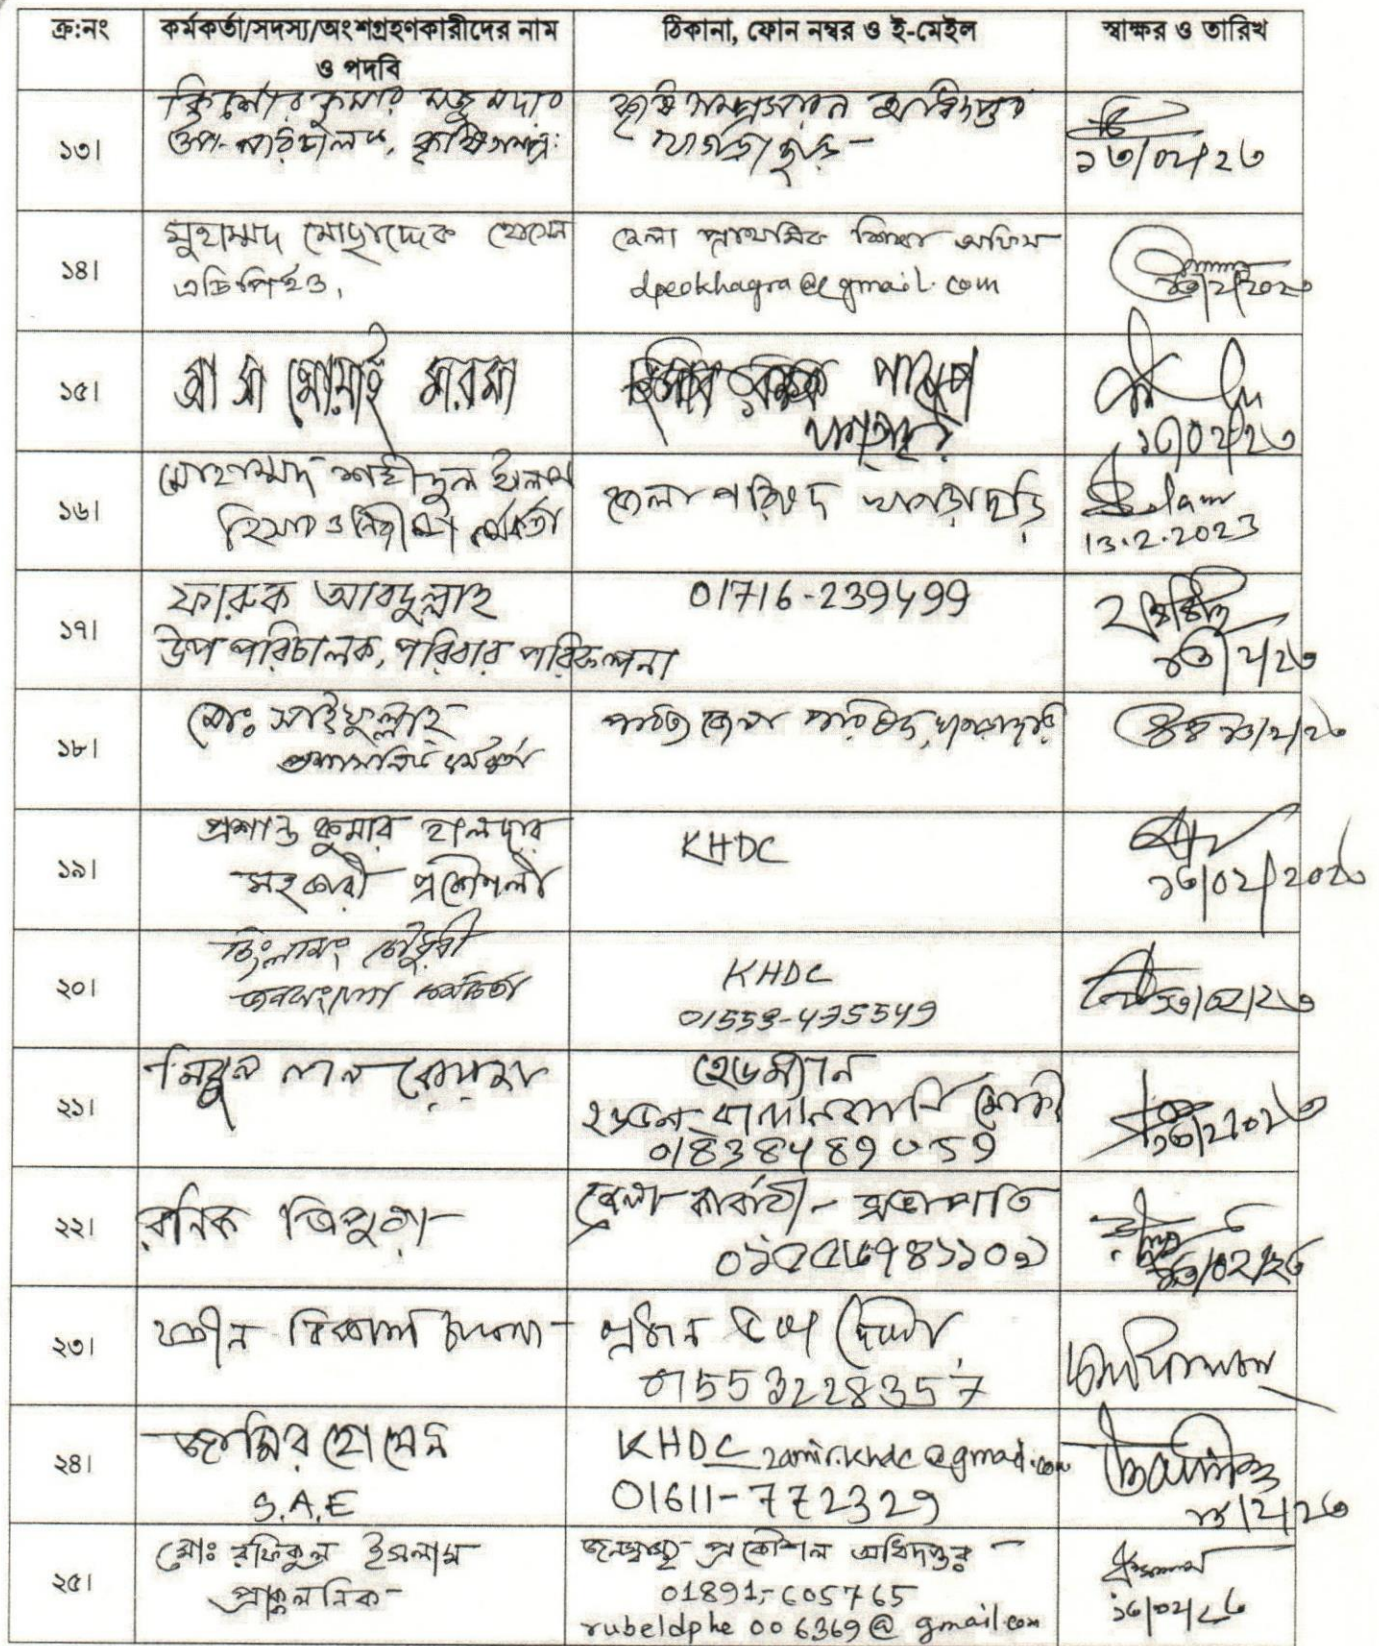 ক্র:নং কর্মকর্তা/সদস্য/অংশগ্রহণকারীদের নাম ও পদবি ঠিকানা, ফোন নম্বর ও ই-মেইল স্বাক্ষর ও তারিখ
১৩। কিশোর কুমার মজুমদার
উপ-পরিচালক, কৃষি সম্প্র:
কৃষি সম্প্রসারন অধিদপ্তর
খাগড়াছড়ি
১৩/০২/২৩
১৪। মুহাম্মদ মোছাদ্দেক হোসেন
এডিপিইও,
জেলা প্রাথমিক শিক্ষা অফিস
dpeokhagra@gmail.com
১৩/২/২০২৩
১৫। মারমা
১৩/০২/২৩
১৬। মোহাম্মদ শহীদুল ইসলাম
হিসাব ও নিরীক্ষা কর্মকর্তা
জেলা পরিষদ খাগড়াছড়ি
13.2.2023
১৭। ফারুক আবদুল্লাহ
উপ পরিচালক, পরিবার পরিকল্পনা
01716-239499
১৩/২/২৩
১৮। মোঃ সাইফুল্লাহ
প্রশাসনিক কর্মকর্তা
পার্বত্য জেলা পরিষদ, খাগড়াছড়ি
১৩/২/২৩
১৯। প্রশান্ত কুমার হালদার
সহকারী প্রকৌশলী
KHDC
১৩/০২/২০২৩
২০। চিংলামং চৌধুরী
জনসংযোগ কর্মকর্তা
KHDC
01553-435549
১৩/০২/২৩
২১। লাল
হেডম্যান
01838489059
১৩/২/২০২৩
২২। রনিক ত্রিপুরা
জেলা কার্বারী - সভাপতি
১৩/০২/২৩
২৩। বিকাশ চাকমা
01553228357
২৪। জামির হোসেন
S.A.E
KHDC zamir.khdc@gmail.com
01611-772329
১৩/২/২৩
২৫। মোঃ রফিকুল ইসলাম
প্রাক্কলনিক
জনস্বাস্থ্য প্রকৌশল অধিদপ্তর
01891-605765
rubeldphe006369@gmail.com
১৩/০২/২৩